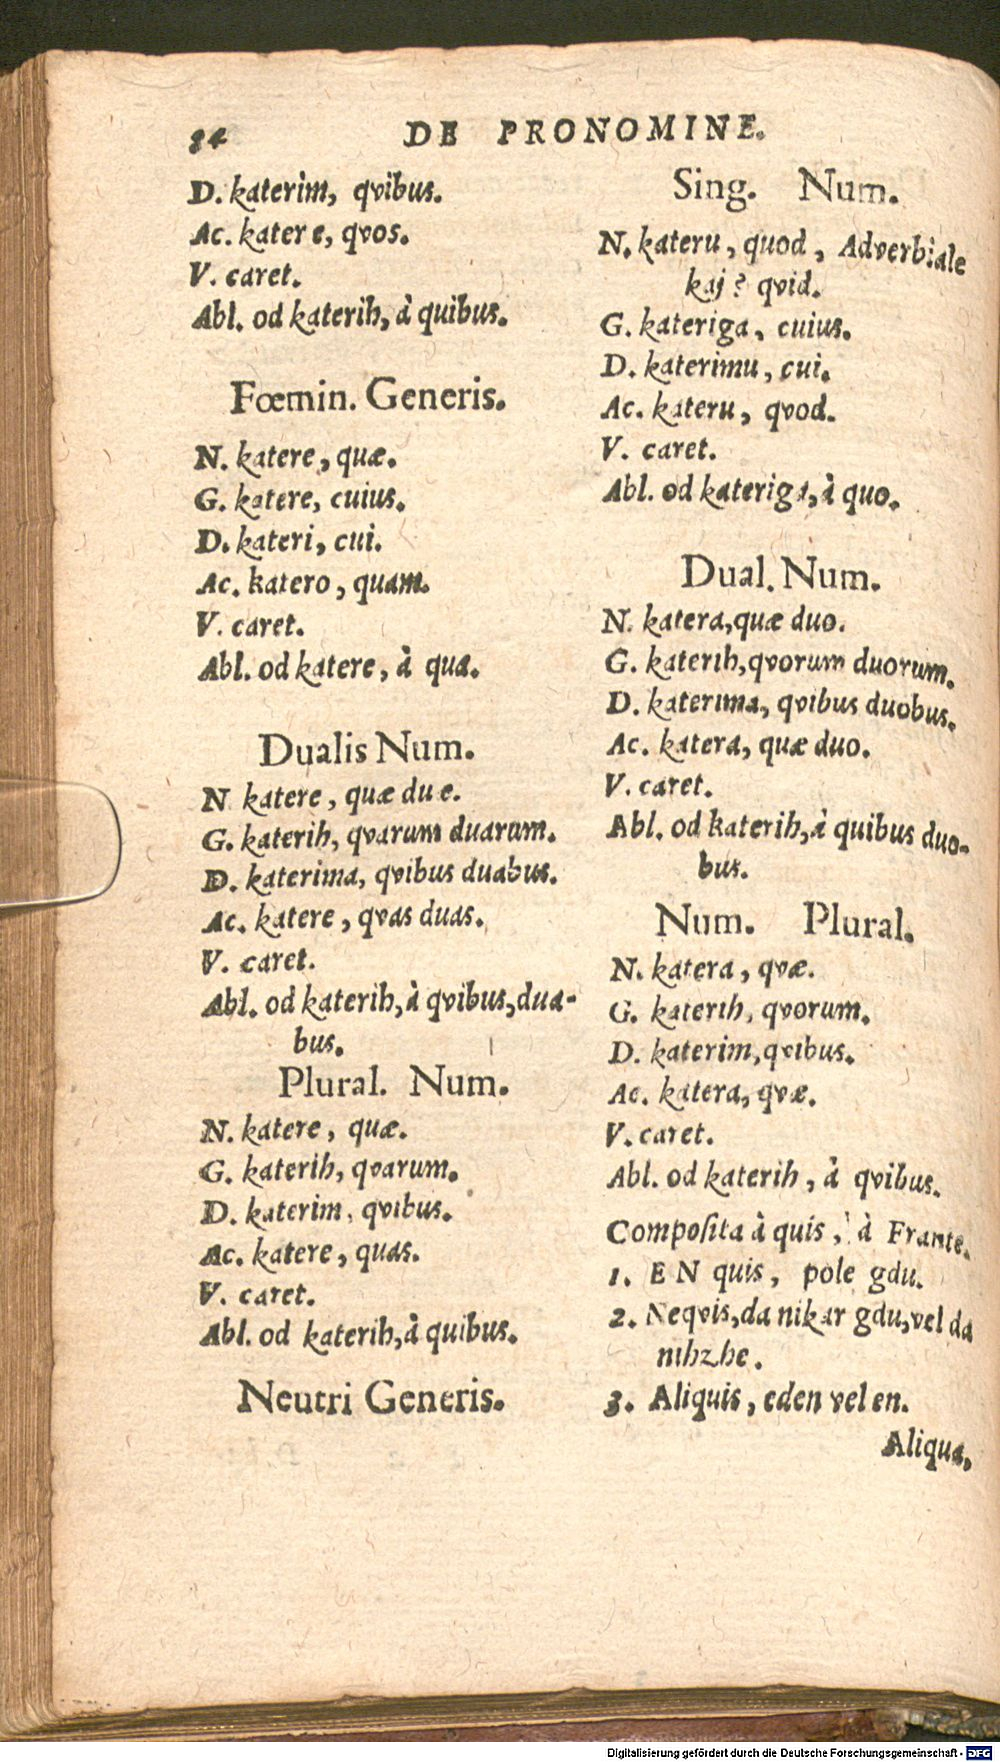 84 DE PRONOMINE.
D. katerim, qvibus.
Ac. katere, qvos.
V. caret.
Abl. od katerih, à quibus.
Fœmin. Generis.
N. katere, quæ.
G. katere, cuius.
D. kateri, cui.
Ac. katero, quam.
V. caret.
Abl. od katere, à qua.
Dualis Num.
N katere, quæ duæ.
G. katerih, qvarum duarum.
D. katerima, qvibus duabus.
Ac. katere, qvas duas.
V. caret.
Abl. od katerih, à qvibus, dua-
bus.
Plural. Num.
N. katere, quæ.
G. katerih, qvarum.
D. katerim, qvibus.
Ac. katere, quas.
V. caret.
Abl. od katerih, à quibus.
Neutri Generis.
Sing. Num.
N. kateru, quod, Adverbiale
kaj? qvid.
G. kateriga, cuius.
D. katerimu, cui.
Ac. kateru, qvod.
V. caret.
Abl. od kateriga, à quo.
Dual. Num.
N. katera, quæ duo.
G. katerih, qvorum duorum.
D. katerima, qvibus duobus.
Ac. katera, quæ duo.
V. caret.
Abl. od katerih, à quibus duo-
bus.
Num. Plural.
N. katera, qvæ.
G. katerih, qvorum.
D. katerim, qvibus.
Ac. katera, qvæ.
V. caret.
Abl. od katerih, à qvibus.
Compoſita à quis, à Frante.
1. EN quis, pole gdu.
2. Neqvis, da nikar gdu, vel da
nihzhe.
3. Aliquis, eden vel en.
Aliqua,
Digitalisierung gefördert durch die Deutsche Forschungsgemeinschaft - DFG